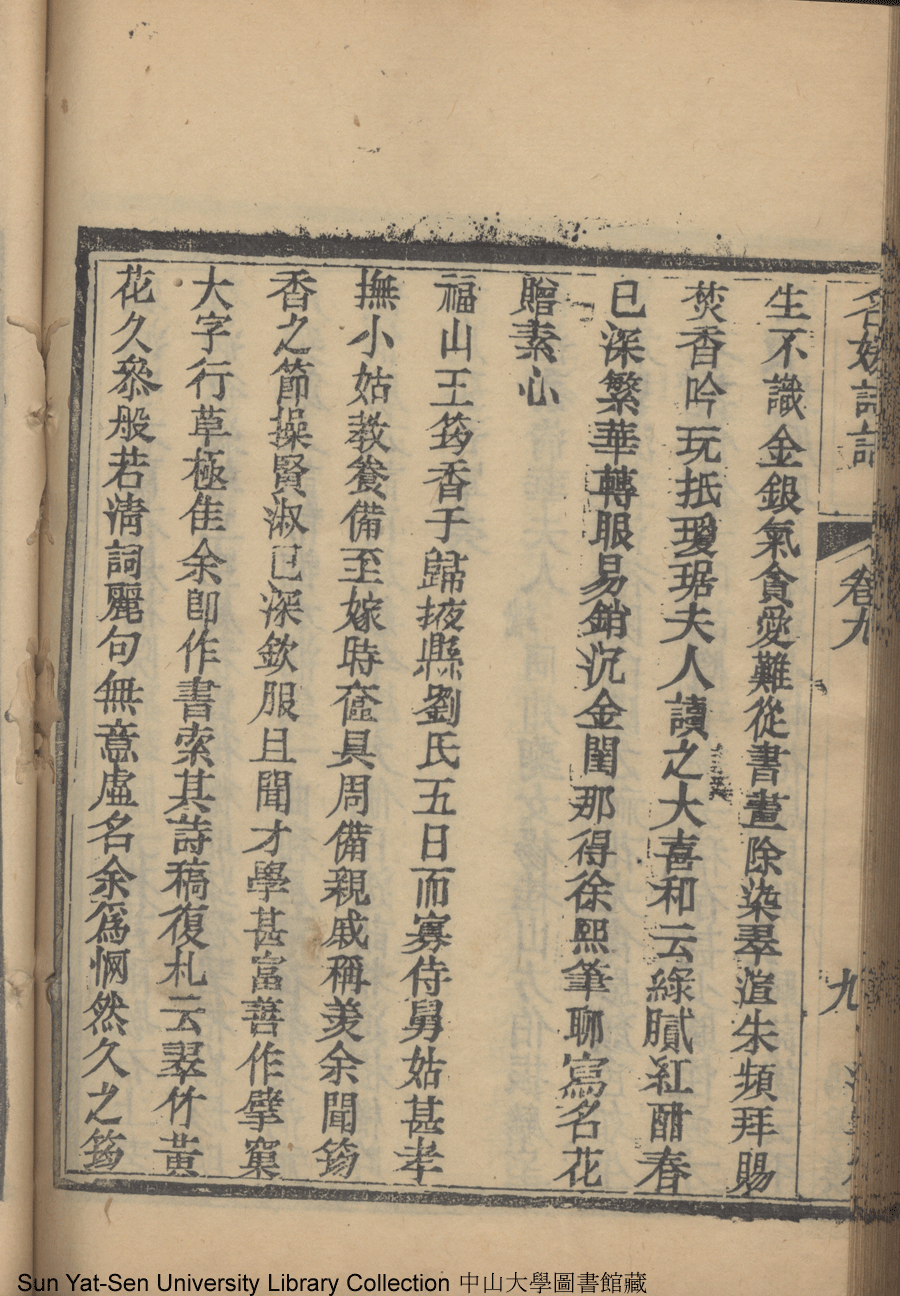 名媛詩話 卷九 九
生不識金銀氣貪愛難從書畫除染翠渲朱頻拜賜
焚香吟玩抵瓊琚夫人讀之大喜和云綠膩紅酣春
已深繁華轉眼易銷沉金閨那得徐熙筆聊寫名花
贈素心
福山王筠香于歸掖縣劉氏五日而寡侍舅姑甚孝
撫小姑教養備至嫁時奩具周備親戚稱羨余聞筠
香之節操賢淑已深欽服且聞才學甚富善作擘窠
大字行草極佳余卽作書索其詩稿復札云翠竹黃
花久叅般若淸詞麗句無意虛名余爲惘然久之筠
Sun Yat-Sen University Library Collection 中山大學圖書館藏